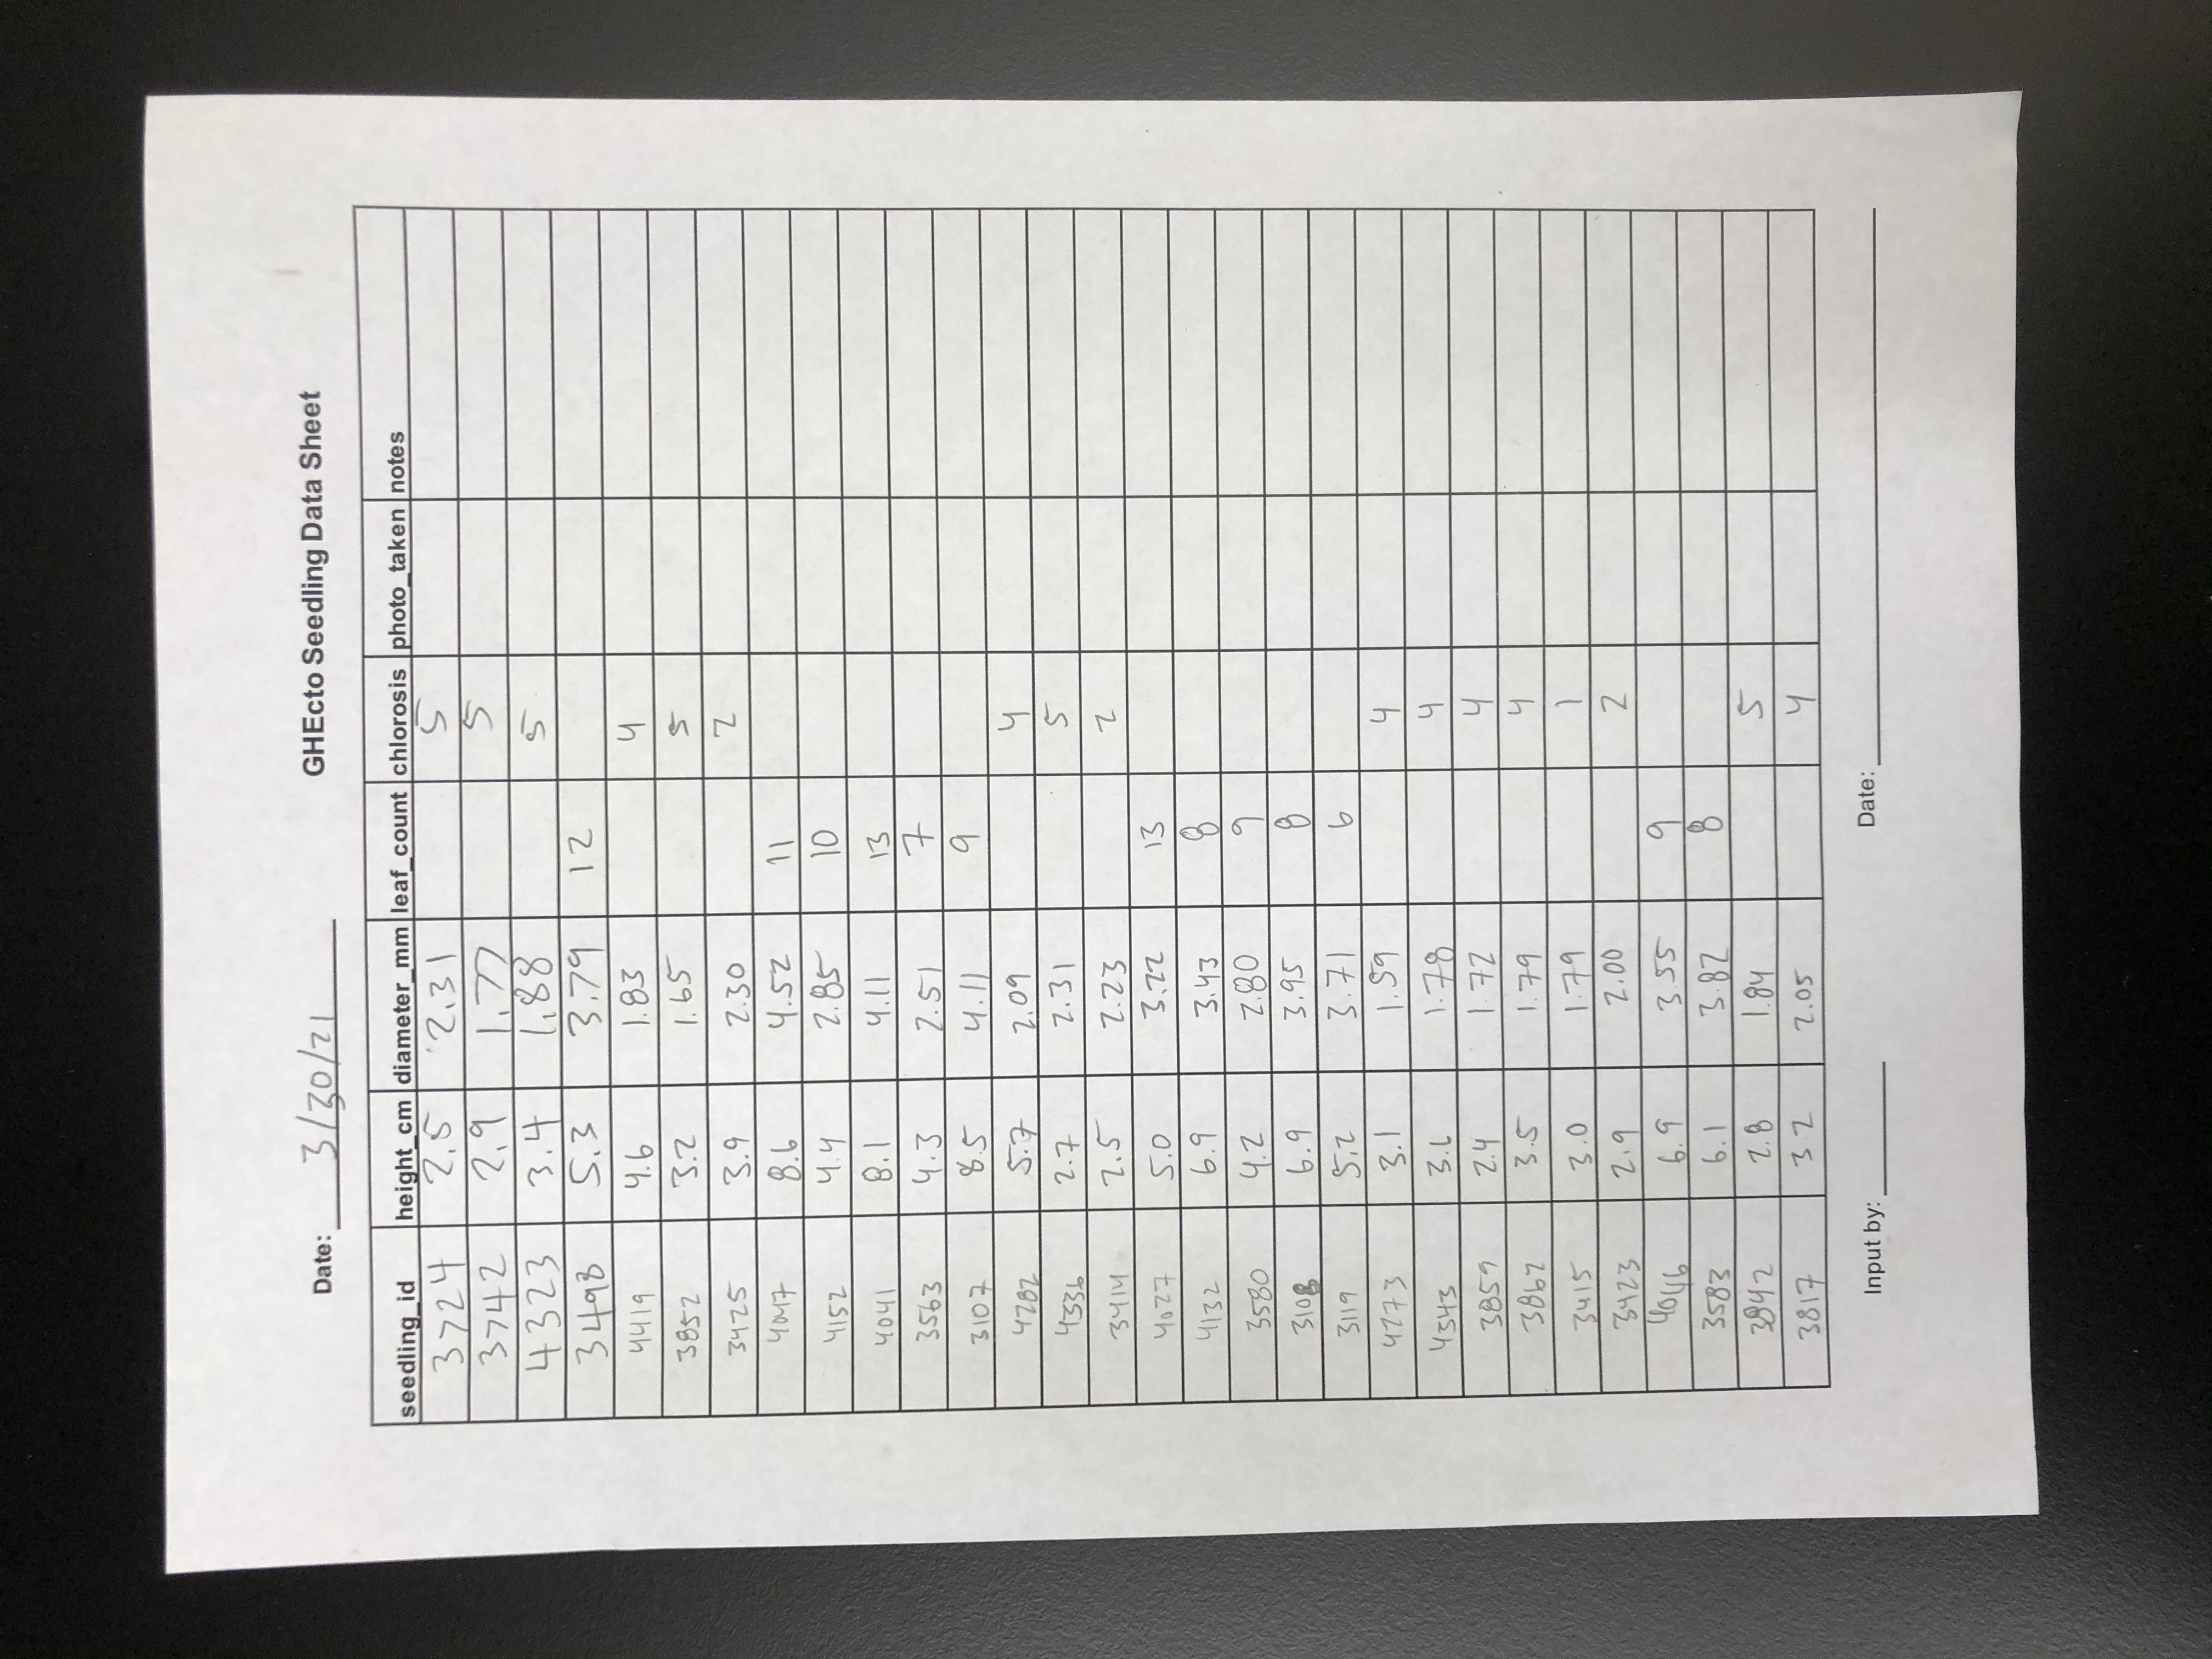 Date: 3/30/21 GHEcto Seedling Data Sheet
seedling_id height_cm diameter_mm leaf_count chlorosis photo_taken notes
3724 2.5 2.31 5
3742 2.9 1.77 5
4323 3.4 1.88 5
3498 5.3 3.79 12
4419 4.6 1.83 4
3852 3.2 1.65 5
3425 3.9 2.30 2
4047 8.6 4.52 11
4152 4.4 2.85 10
4041 8.1 4.11 13
3563 4.3 2.51 7
3107 8.5 4.11 9
4282 5.7 2.09 4
4336 2.7 2.31 5
3414 2.5 2.23 2
4027 5.0 3.22 13
4132 6.9 3.43 8
3580 4.2 2.80 9
3108 6.9 3.95 8
3119 5.2 3.71 6
4273 3.1 1.59 4
4343 3.6 1.78 4
3859 2.4 1.72 4
3862 3.5 1.79 4
3415 3.0 1.79 1
3423 2.9 2.00 2
4046 6.9 3.55 9
3583 6.1 3.82 8
3842 2.8 1.84 5
3817 3.2 2.05 4
Input by: Date: